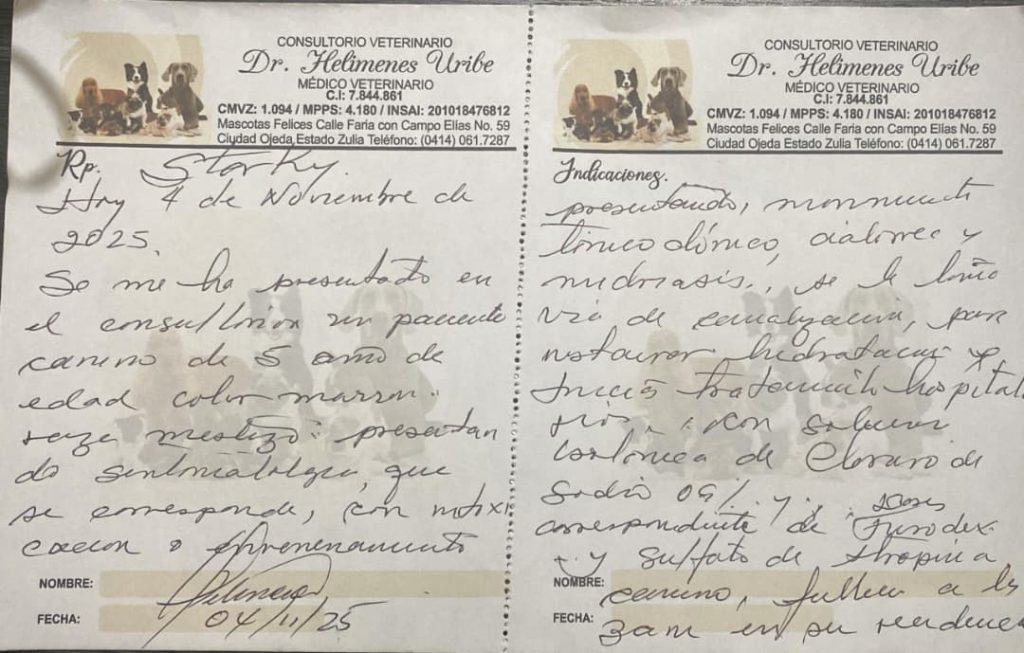 CONSULTORIO VETERINARIO
Dr. Helimenes Uribe
MÉDICO VETERINARIO
C.I: 7.844.861
CMVZ: 1.094 / MPPS: 4.180 / INSAI: 201018476812
Mascotas Felices Calle Faria con Campo Elias No. 59
Ciudad Ojeda Estado Zulia Teléfono: (0414) 061.7287
Rp. Storky
Hoy 4 de Noviembre de
2025.
Se me ha presentado en
el consultorio un paciente
canino de 5 año de
edad color marron.
raza mestizo. presentan
do sintomatologia, que
se corresponde, con intoxi
cacion o envenenamiento
NOMBRE:
FECHA: 04/11/25
CONSULTORIO VETERINARIO
Dr. Helimenes Uribe
MÉDICO VETERINARIO
C.I: 7.844.861
CMVZ: 1.094 / MPPS: 4.180 / INSAI: 201018476812
Mascotas Felices Calle Faria con Campo Elias No. 59
Ciudad Ojeda Estado Zulia Teléfono: (0414) 061.7287
Indicaciones.
presentando, movimiento
tonico clónico, sialorrea y
midriasis, se le tomó
via de canalización, para
instaurar hidratación y
Inició tratamiento hospitala
rio, con solucion
Isotónica de Cloruro de
Sodio 09%. y. Dosis
correspondiente de Furodex.
y sulfato de Atropina
NOMBRE: canino, fallece a las
FECHA: 3am en su residencia